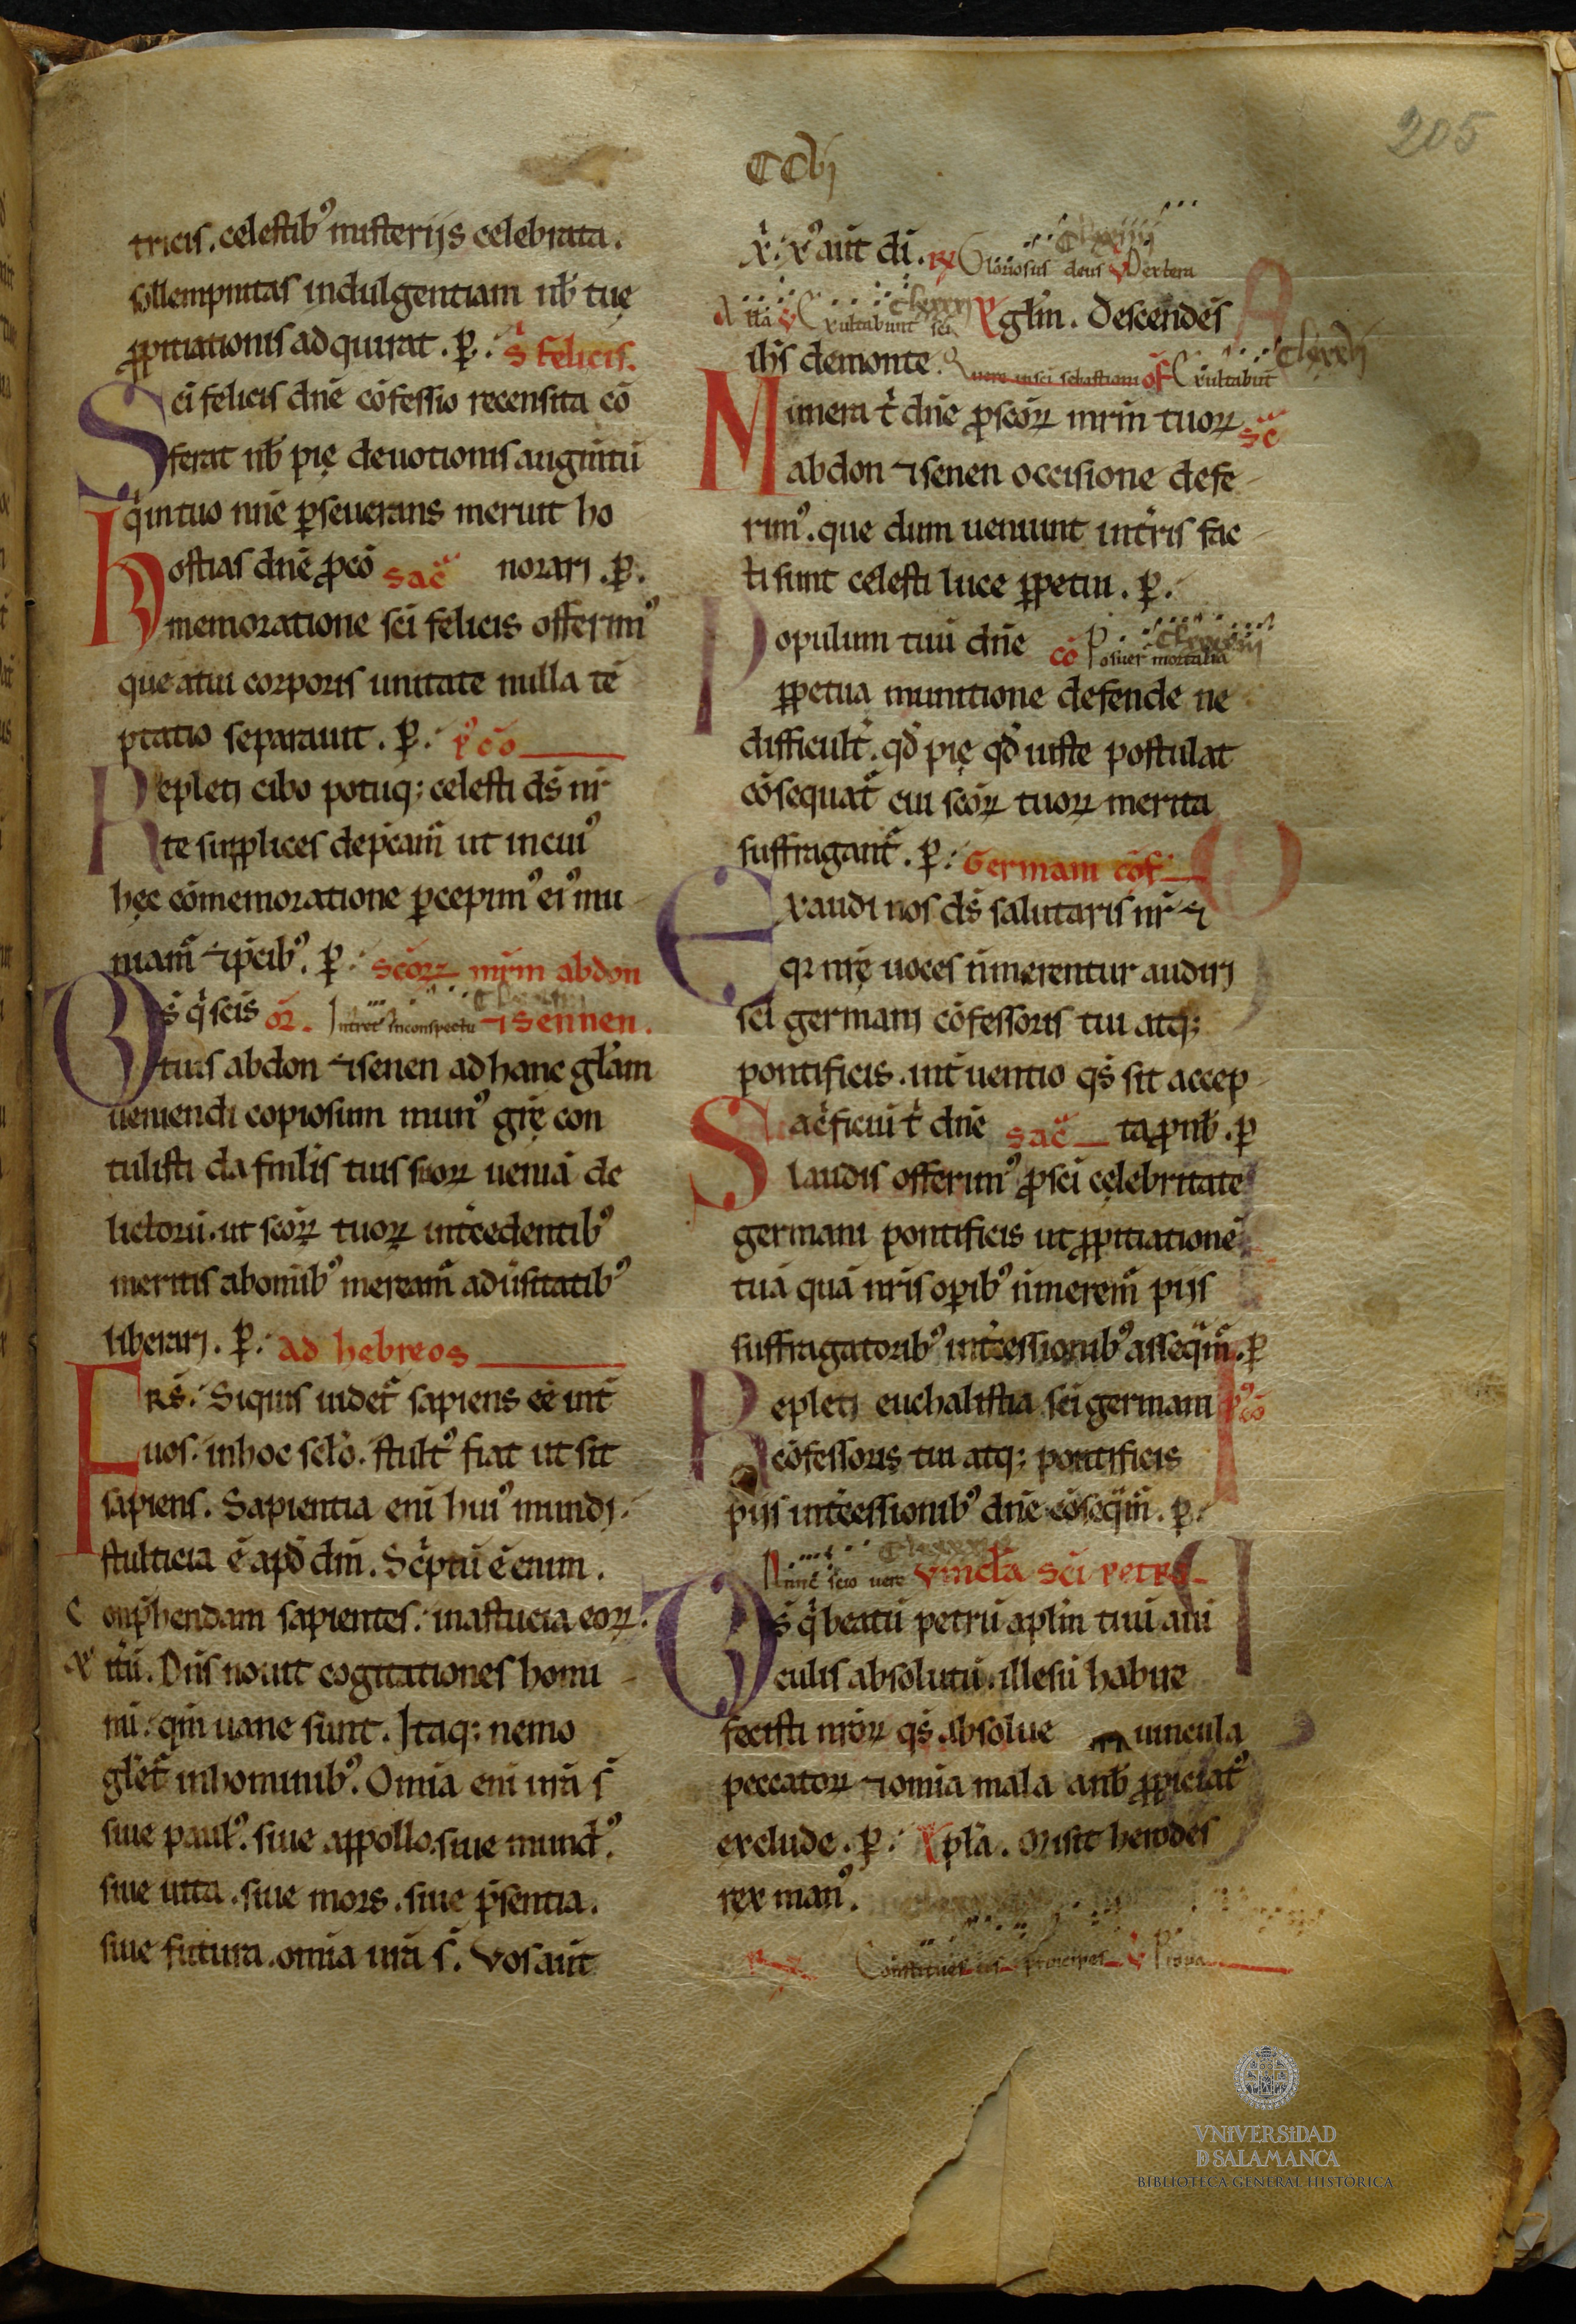 205
CCvj
tricis. celestib⁹ misterijs celebrata.
sollempnitas indulgentiam nb̄ tuę
ꝓpitiationis adquirat. ꝑ. S felicis.
Sci felicis dn̄e cōfessio recensita cō
ferat nb̄ pię deuotionis augm̄tū
q̇ in tuo nn̄e ꝑseuerans meruit ho
hostias dn̄e ꝓ cō sac̄ norari. ꝑ.
memoratione sc̄i felicis offerim⁹
que a tui corporis unitate nulla tē
ptatio separauit. ꝑ. p⁹cō
Repleti cibo potuq; celesti ds̄ nr̄
te supplices dep̄cam̄ ut in cui⁹
hęc cōmemoratione ꝑcepim⁹ ei⁹ mu
niam̄ ⁊ p̄cib⁹. ꝑ. sc̄oꝝ mr̄m abdon
Ds̄ q̇ sc̄is or̄. Intret in conspectu ⁊ sennen.
tuis abdon ⁊ senen ad hanc gl̄am
ueniendi copiosum mun⁹ gr̄ę con
tulisti da fml̄is tuis suoꝝ ueniā de
lictorū. ut sc̄oꝝ tuoꝝ int̄cedentib⁹
meritis ab om̄ib⁹ meream̄ aduersitatib⁹
liberari. ꝑ. Ad hebreos
Frs̄. Siquis uidet̄ sapiens eē int̄
uos. in hoc sc̄lo. stult⁹ fiat ut sit
sapiens. Sapientia eni hui⁹ mundi.
stulticia ē apd̄ dm̄. Scͥptū ē enim.
Conp̄hendam sapientes. in astucia eoꝝ.
⁊ itū. Dn̄s nouit cogitationes homi
nū. qm̄ uane sunt. Itaq; nemo
glet̄ in hominib⁹. Omia eni ur̄a s̄
siue paul⁹. siue appollo. siue mund⁹.
siue uita. siue mors. siue p̄sentia.
siue futura. omia ur̄a s̄. Vos aūt
x̄. x⁹ aūt dī. R Gloriosus deus V Dextera
Alla V Exultabunt sci Eugl̄m. Descendēs
ih̄s de monte. Quere in sci sebastiani of Exultabūt
Munera t̄ dn̄e ꝓ sc̄oꝝ mr̄m tuoꝝ sc̄
abdon ⁊ senen occisione defe
rim⁹. que dum ueniunt in tr̄is fac
ti sunt celesti luce ꝑpetui. ꝑ.
Populum tuū dn̄e cō Posuer̄ mortalia
ꝑpetua munitione defende ne
difficult̄. qd̄ pię qd̄ iuste postulat
cōsequat̄ cui sc̄oꝝ tuoꝝ merita
suffragant̄. ꝑ. Germani cōf
Exaudi nos ds̄ salutaris nr̄ ⁊
qꝛ nr̄ę uoces n̄ merentur audiri
sc̄i germani cōfessoris tui atq;
pontificis. int̄uentio qs̄ sit accep
Sac̄ficiū t̄ dn̄e sac̄ ta ꝓ nb̄. ꝑ
laudis offerim⁹ ꝓ sc̄i cęlebritate
germani pontificis ut ꝓpitiationē
tuā quā nr̄is oꝑib⁹ n̄ merem̄ pijs
suffragatorib⁹ int̄cessionib⁹ asseq̄m̄. ꝑ
Repleti eucharistia sc̄i germani p⁹cō
cōfessoris tui atq; pontificis
piis int̄cessionib⁹ dn̄e cōseq̄m̄. ꝑ.
Nunc scio uere Vincla sc̄i petri
Ds̄ q̇ beatū petrū apl̄m tuū a uī
culis absolutū. illesū habire
fecisti nr̄oꝝ qs̄ absolue uincula
peccatoꝝ ⁊ omia mala a nb̄ ꝓpiciat⁹
exclude. ꝑ. Epl̄a. Misit herodes
rex man⁹.
R Constitues eos principes V Pro pa
VNiVERSiDAD
D SALAMANCA
BIBLIOTECA GENERAL HISTÓRICA